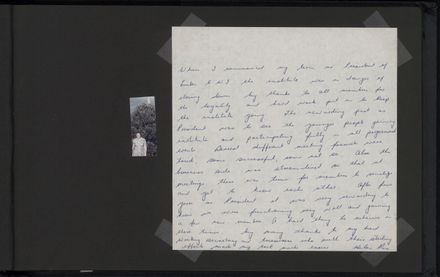 When I commenced my term as President of
W.D.F.F. the institute was in danger of
closing down. My thanks to all members for
the loyalty and hard work put in to keep
the institute going. The rewarding part as
President was to see the younger people joining
institute and participating fully in all
Several different meeting formats were
tried, some successful, some not so. Also the
business side was streamlined so that at
meetings there was time for members to socialize
and get to know each other. After five
years as President it was very rewarding to
know we were functioning very well and gaining
a few new members. A hard thing to achieve in
these times. My many thanks to my hard
working secretaries and treasurers who with their
efforts made my task much easier.